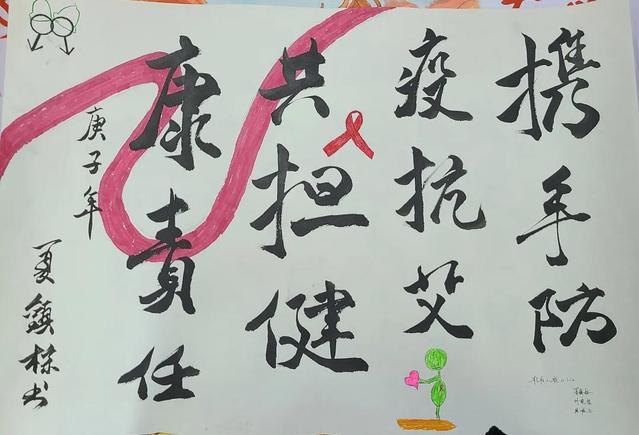 携手防
疫抗艾
共担健
康责任
庚子年
夏镇栋书